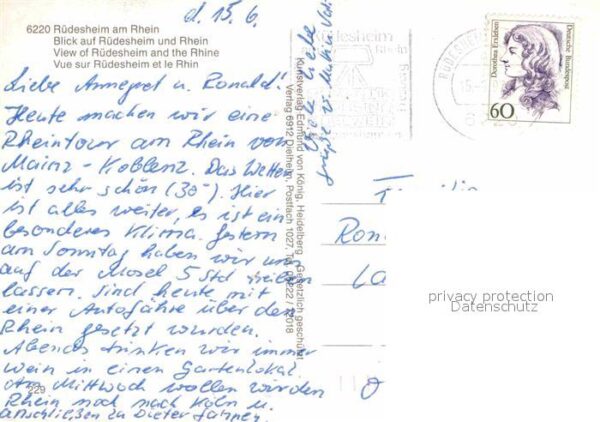 d. 15. 6.
6220 Rüdesheim am Rhein
Blick auf Rüdesheim und Rhein
View of Rüdesheim and the Rhine
Vue sur Rüdesheim et le Rhin
Liebe Annegret u. Ronald!
Heute machen wir eine
Rheintour am Rhein von
Mainz - Koblenz. Das Wetter
ist sehr schön (30°). Hier
ist alles weiter, es ist ein
besonderes Klima. Gestern
am Sonntag haben wir uns
auf der Mosel 5 Std treiben
lassen. Sind heute mit
einer Autofähre über den
Rhein gesetzt worden.
Abends trinken wir immer
Wein in einen Gartenlokal.
Am Mittwoch wollen wir den
Rhein noch nach Köln u.
anschließen zu Dieter fahren
Liebe
Grüße v. Vati
Kunstverlag Edmund von König, Heidelberg Gesetzlich geschützt
Verlag 6912 Dielheim, Postfach 1027, Tel. 06222 / 72018
229
Rüdesheim
Rhein
RÜDESHEIM
Dorothea Erxleben
Deutsche Bundespost
60
Ron
privacy protection
Datenschutz